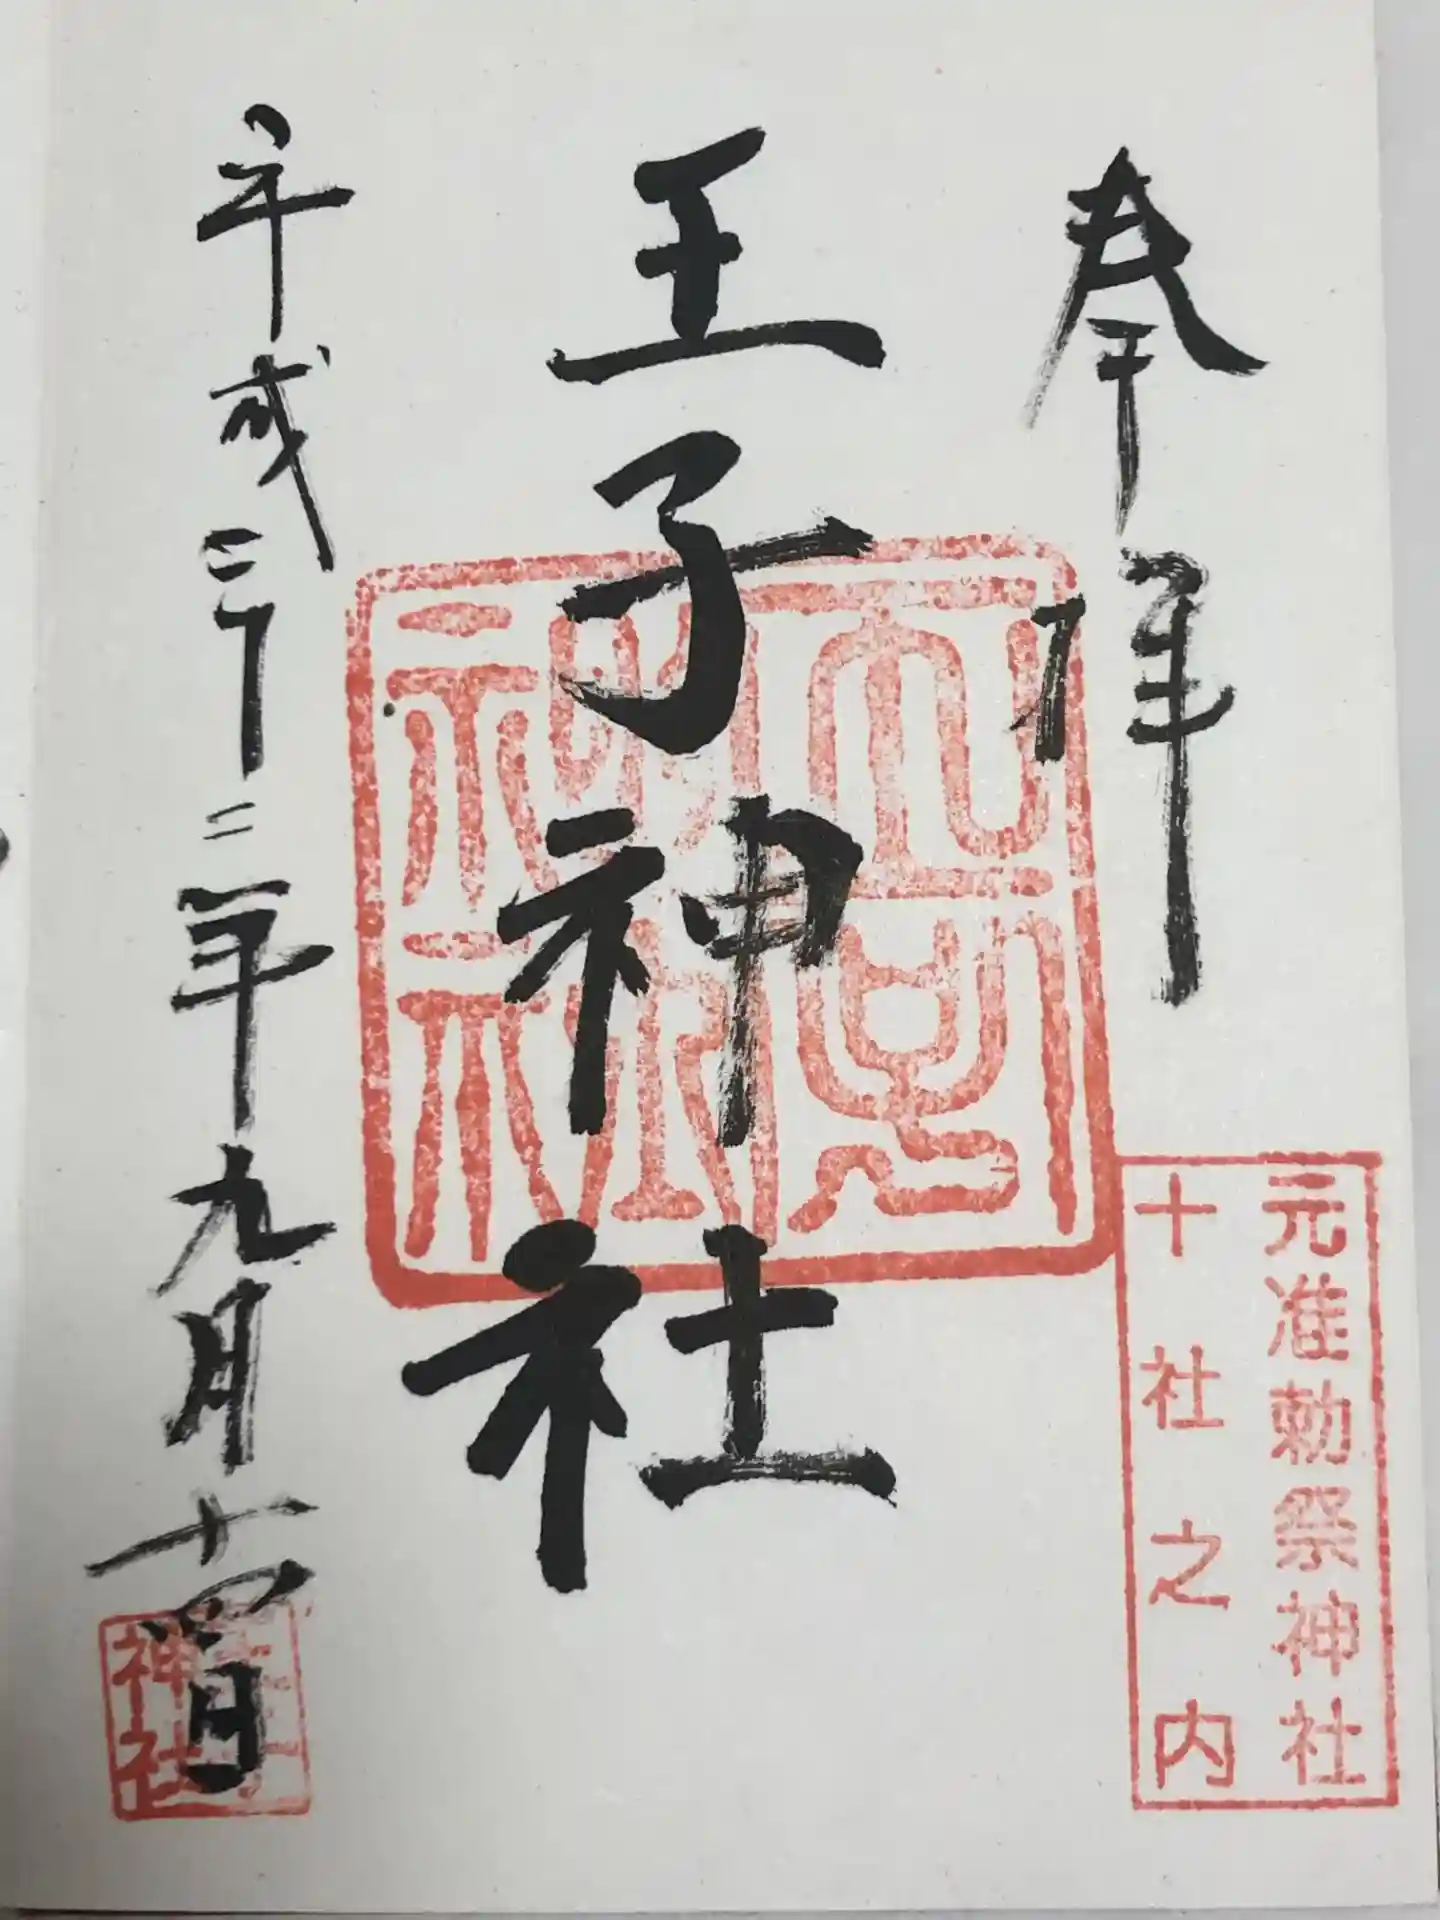 奉拝
元准勅祭神社
十社之内
王子神社
平成二十二年九月十四日
王子
神社